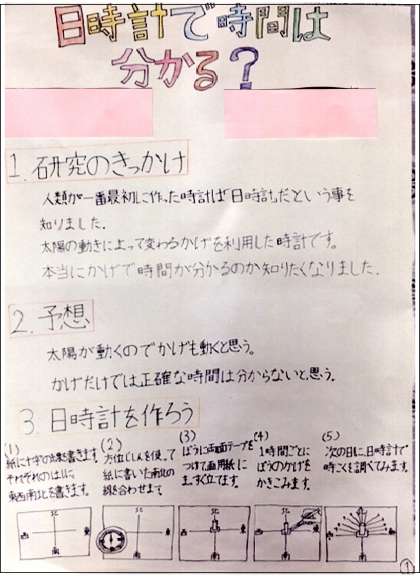 日時計で時間は
分かる?
1.研究のきっかけ
人類が一番最初に作った時計は「日時計」だという事を
知りました.
太陽の動きによって変わるかげを利用した時計です。
本当にかげで時間が分かるのか知りたくなりました.
2.予想
太陽が動くのでかげも動くと思う。
かげだけでは正確な時間は分からないと思う.
3.日時計を作ろう
(1)
紙に十字の線を書きます。
それぞれのはしに、
東西南北を書きます。
(2)
方位じしんを使って
紙に書いた南北の
線を合わせます
(3)
ぼうに両面テープを
つけて画用紙に
まっすぐ立てます。
(4)
1時間ごとに
ぼうのかげを
かきこみます。
(5)
次の日に、日時計で
時こくを調べてみます。
北
西 東
南
北
北
西 東
南
北
西 東
南
北
西 東
南
1